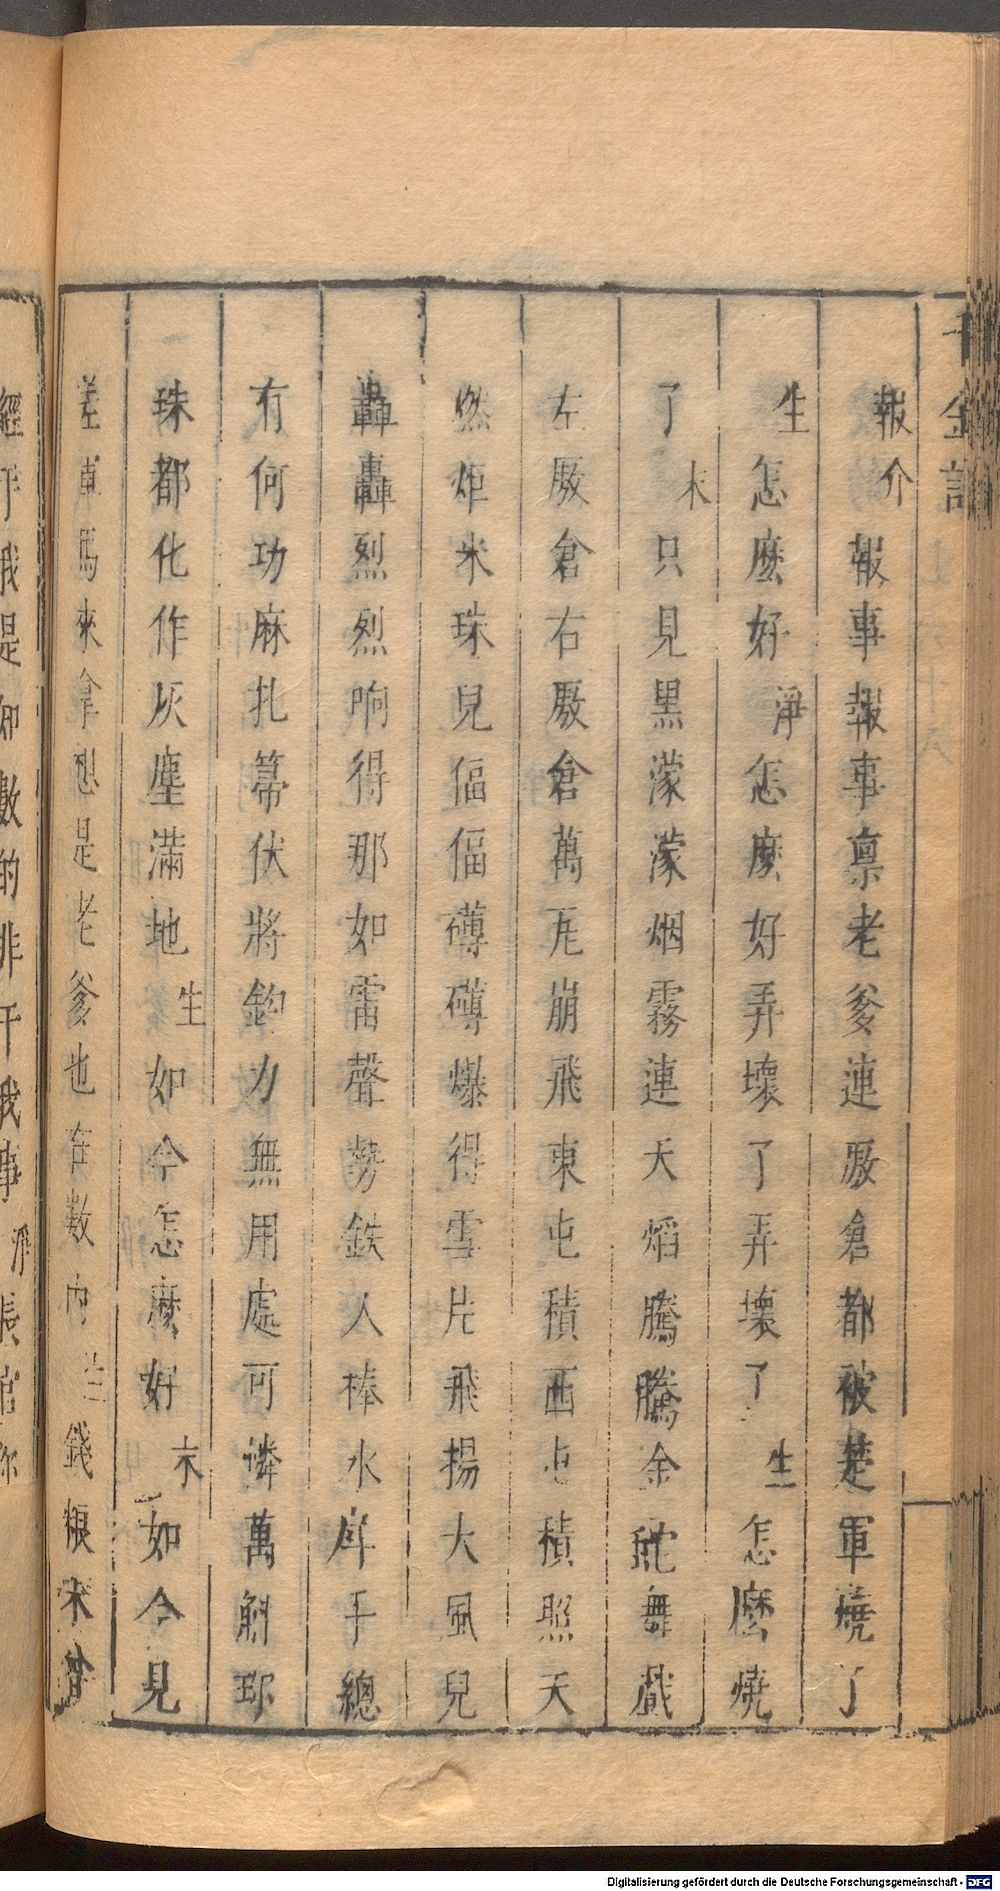 千金記
報介報事報事禀老爹連厫倉都被楚軍燒了
生怎麽好淨怎麽好弄壞了弄壞了生怎麽燒
了末只見黒濛濛烟霧連天焰騰騰金蛇舞戯
左厫倉右厫倉萬瓦崩飛東屯積西屯積照天
燃炬米珠兒偪偪礡礡爆得雪片飛揚大風兒
轟轟烈烈响得那如雷聲勢鉄人棒水岸手總
有何功麻扎幂伏將鈎力無用處可憐萬斛
珠都化作灰塵滿地生如今怎麽好末如今見
差車馬來拿想是老爹也在数内生錢粮未曾
經手我是知數的非干我事淨張倌你
Digitalisierung gefördert durch die Deutsche Forschungsgemeinschaft - DFG